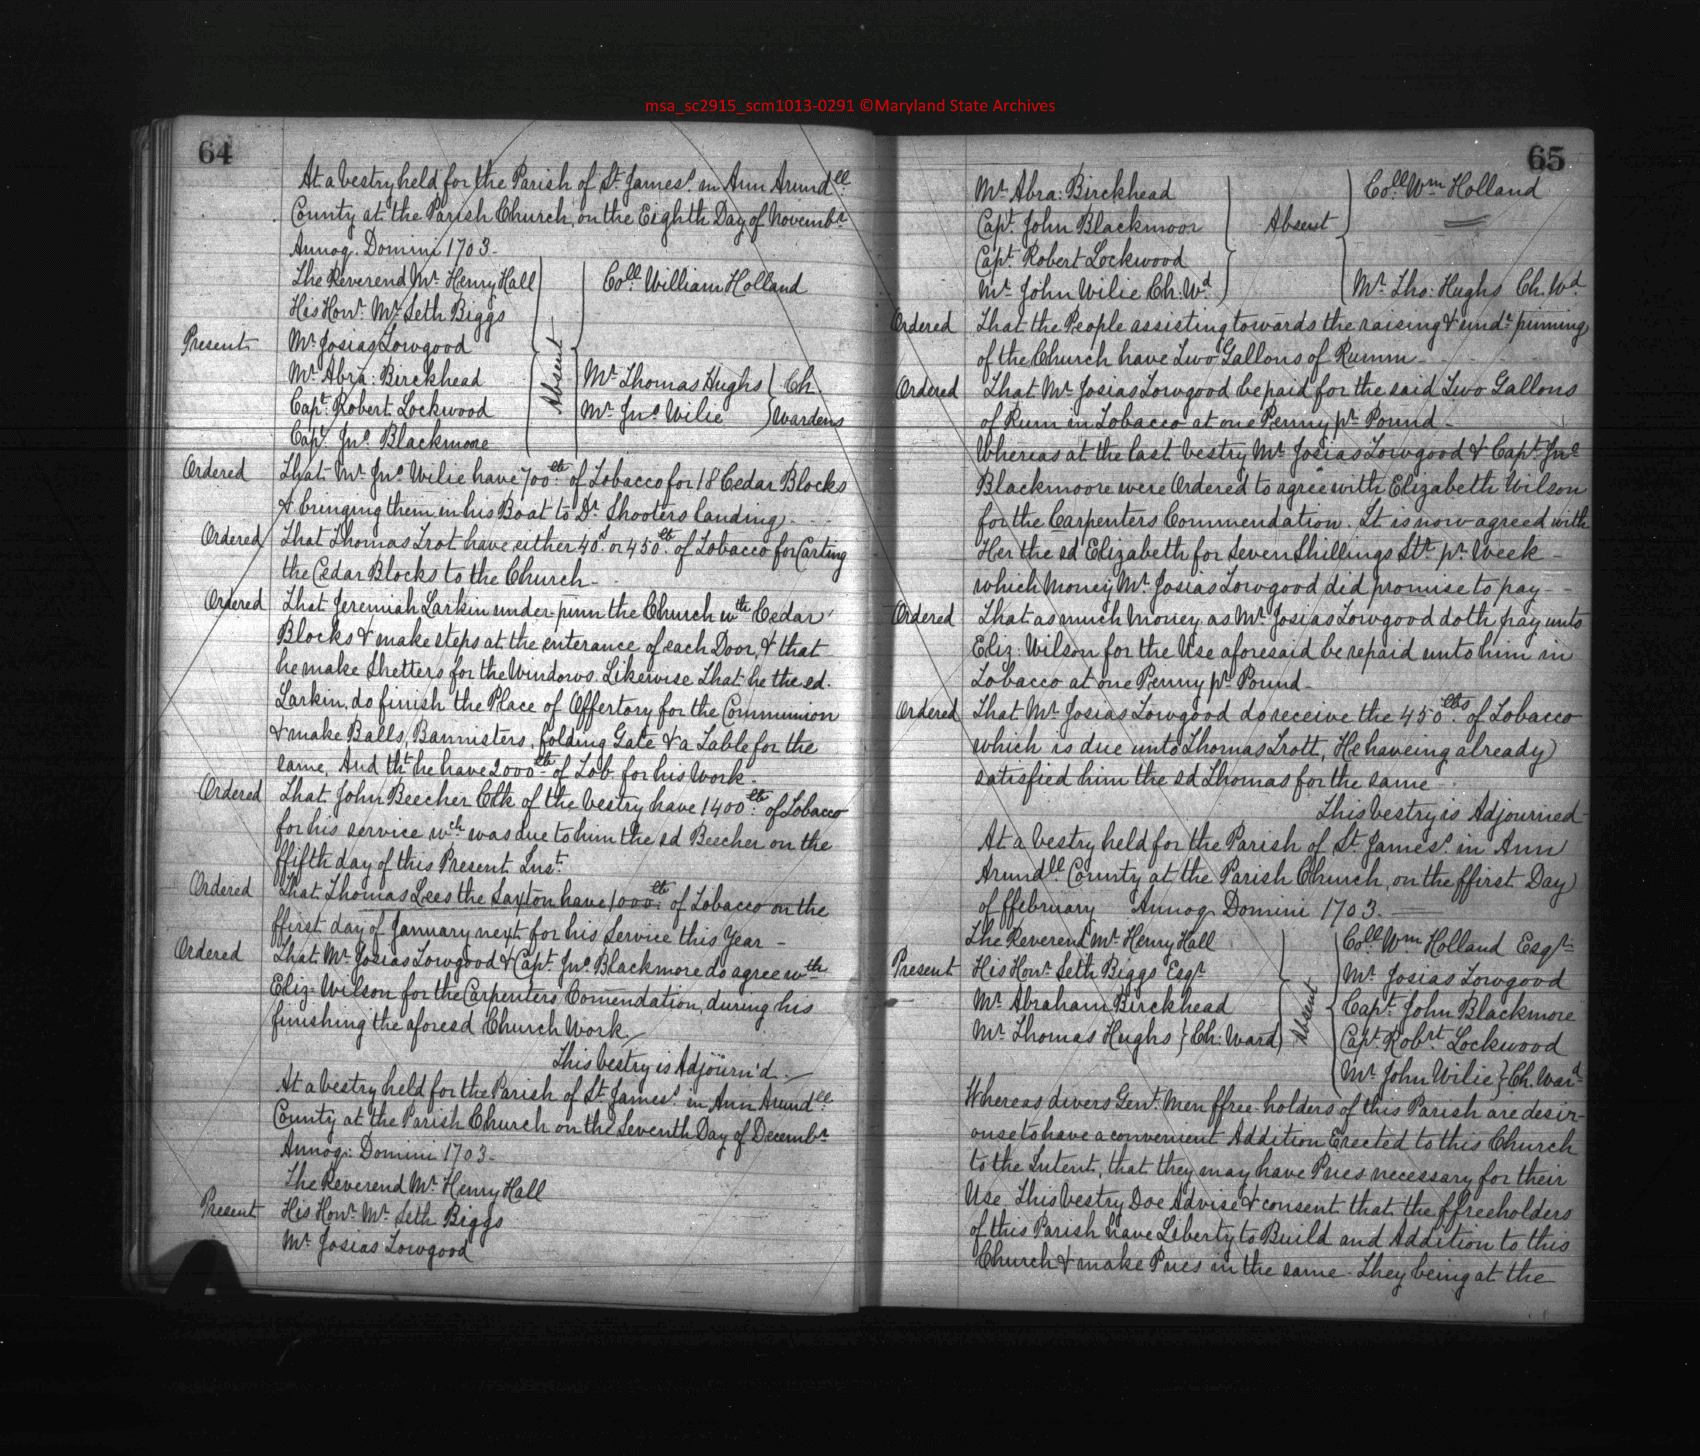 msa_sc2915_scm1013-0291 ©Maryland State Archives
64
At a vestry held for the Parish of St. James's in Ann Arundll
County at the Parish Church, on the Eighth Day of Novembr
Annoq. Domini 1703 -
The Reverend Mr Henry Hall
His Honr. Mr Seth Biggs
Present Mr Josias Towgood
Mr Abra: Birckhead
Capt. Robert Lockwood
Capt. Jno. Blackmore
Absent
Coll. William Holland
Mr Thomas Hughs } Ch.
Mr Jno. Wilie } Wardens
Ordered That Mr Jno. Wilie have 700lb of Tobacco for 18 Cedar Blocks
& bringing them in his Boat to Dr. Shooters landing. - -
Ordered That Thomas Trot have either 40s or 450lb of Tobacco for Carting
the Cedar Blocks to the Church -
Ordered That Jeremiah Larkin under-pinn the Church wth Cedar
Blocks & make steps at the enterance of each Door, & that
he make Shetters for the Windows. Likewise That he the sd.
Larkin, do finish the Place of Offertory for the Communion
& make Balls, Bannisters, folding Gate & a Table for the
same, And tht he have 2000lb of Tob. for his Work -
Ordered That John Beecher Clk of the Vestry have 1400lb of Tobacco
for his service wch was due to him the sd Beecher on the
ffifth day of this Present Inst.
Ordered That Thomas Lees the Saxton have 1000lb of Tobacco on the
ffirst day of January next for his Service this Year -
Ordered That Mr Josias Towgood & Capt. Jno. Blackmore do agree wth
Eliz. Wilson for the Carpenters Comendation, during his
finishing the aforesd Church Work
This Vestry is Adjourn'd.
At a Vestry held for the Parish of St. James's in Ann Arundll
County at the Parish Church on the Seventh Day of Decembr
Annoq: Domini 1703 -
The Reverend Mr Henry Hall
Present His Honr. Mr Seth Biggs
Mr Josias Towgood
65
Mr Abra: Birckhead
Capt. John Blackmoor
Capt. Robert Lockwood
Mr John Wilie Ch. Wd.
Absent
Coll Wm Holland
Mr Tho: Hughs Ch. Wd.
Ordered That the People assisting towards the raising & undr pinning
of the Church have Two Gallons of Rumm -
Ordered That Mr Josias Towgood be paid for the said Two Gallons
of Rum in Tobacco at one Penny pr Pound -
Whereas at the last Vestry Mr Josias Towgood & Capt. Jno
Blackmoore were Ordered to agree with Elizabeth Wilson
for the Carpenters Commendation. It is now agreed with
Her the sd Elizabeth for Seven Shillings Str pr Week -
which Money Mr Josias Towgood did promise to pay - -
Ordered That as much Money as Mr Josias Towgood doth pay unto
Eliz: Wilson for the Use aforesaid be repaid unto him in
Tobacco at one Penny pr Pound -
Ordered That Mr Josias Towgood do receive the 450lbs of Tobacco
which is due unto Thomas Trott, He haveing already
satisfied him the sd Thomas for the same -
This Vestry is Adjourned -
At a Vestry held for the Parish of St. James's in Ann
Arundll County at the Parish Church, on the ffirst Day
of ffebruary Annoq. Domini 1703.
The Reverend Mr Henry Hall
Present His Honr Seth Biggs Esqr
Mr Abraham Birckhead
Mr Thomas Hughs } Ch: Ward
Absent
Coll Wm Holland Esqr
Mr Josias Towgood
Capt. John Blackmore
Capt. Robrt Lockwood
Mr John Wilie } Ch. Ward
Whereas divers Gent. Men ffree-holders of this Parish are desir-
ouse to have a convenient Addition Erected to this Church
to the Intent, that they may have Pues necessary for their
Use This Vestry Doe Advise & consent that the ffreeholders
of this Parish have Liberty to Build and Addition to this
Church & make Pues in the same - They being at the